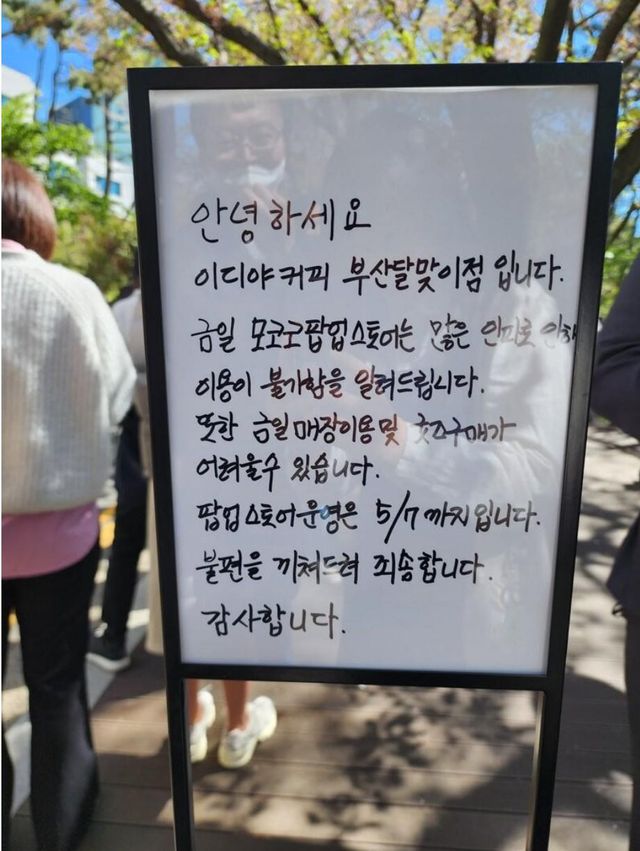 안녕하세요
이디야커피 부산달맞이점 입니다.
금일 모코코팝업스토어는 많은 인파로 인해
이용이 불가함을 알려드립니다.
또한 금일매장이용및 굿즈구매가
어려울수 있습니다.
팝업스토어운영은 5/7까지입니다.
불편을 끼쳐드려 죄송합니다.
감사합니다.